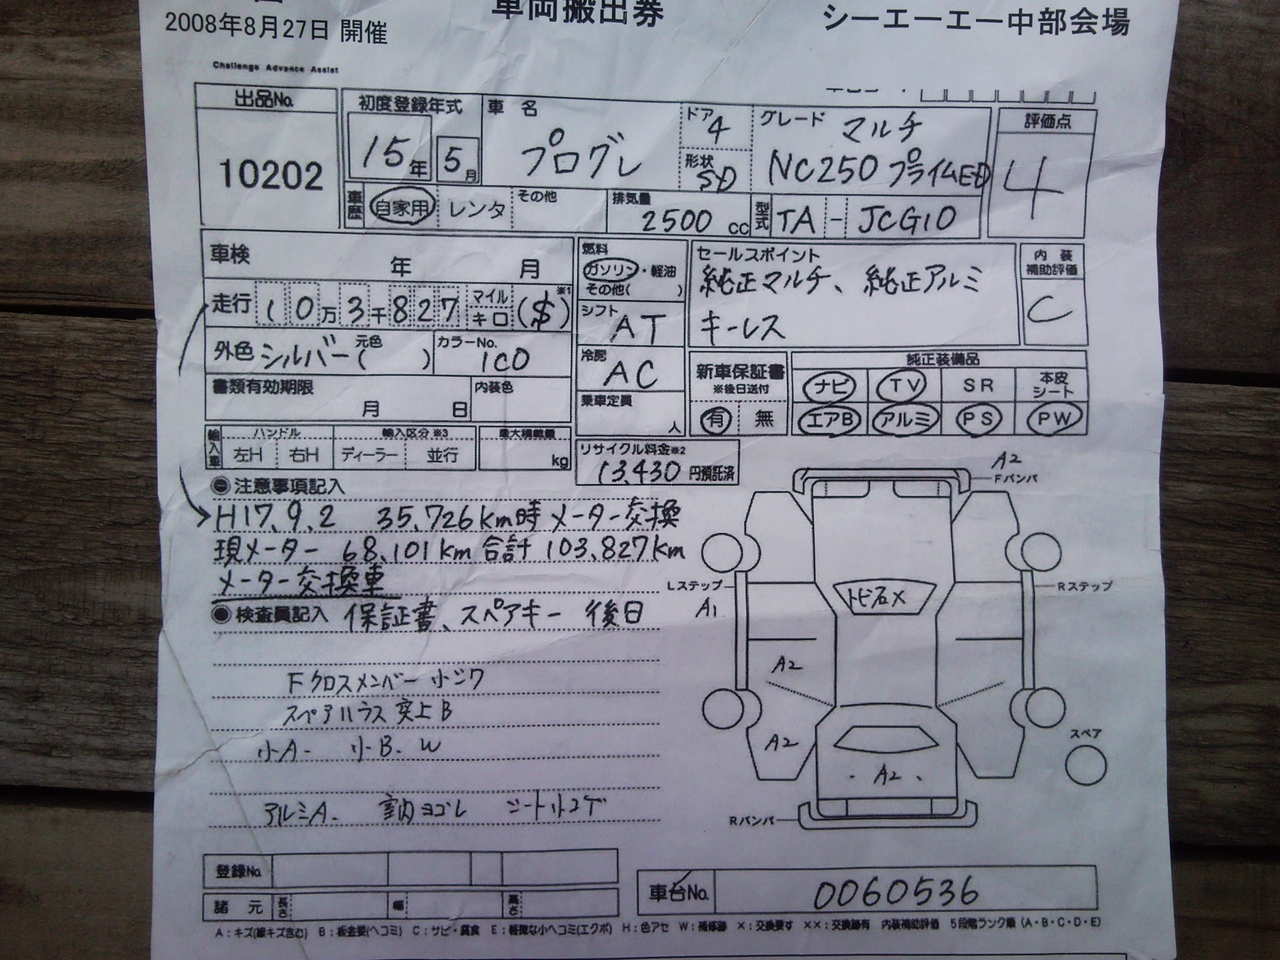 車両搬出券
2008年8月27日 開催 シーエーエー中部会場
Challenge Advance Assist
出品No. 10202
初度登録年式 15年 5月
車名 プログレ
ドア 4
形状 SD
グレード マルチ
NC250 プライムED
評価点 4
車歴 自家用 レンタ その他
排気量 2500 cc
型式 TA - JCG10
車検 年 月
走行 10万3千827 マイル キロ ($) ※1
外色 シルバー 元色 ( )
カラーNo. 1C0
書類有効期限 月 日
内装色
燃料 ガソリン・軽油
その他( )
シフト AT
冷房 AC
乗車定員 人
セールスポイント
純正マルチ、純正アルミ
キーレス
内装補助評価 C
新車保証書
※後日送付
有 無
純正装備品
ナビ TV SR 本皮シート
エアB アルミ PS PW
輸入車 ハンドル 左H 右H
輸入区分 ※3 ディーラー 並行
最大積載量 kg
リサイクル料金※2
13,430 円預託済
注意事項記入
H17.9.2 35,726km時 メーター交換
現メーター 68,101km 合計 103,827km
メーター交換車
検査員記入 保証書、スペアキー 後日
Fクロスメンバー 小ジワ
スペアハウス 突上B
小A- 小B. W
アルミA. 室内ヨゴレ シート小コゲ
A2
Fバンパ
Lステップ
A1
Rステップ
トビ石X
A2
A2
スペア
・A2・
Rバンパ
登録No.
諸元 長さ 幅 高さ
車台No. 0060536
A：キズ(線キズ含む) B：板金要(ヘコミ) C：サビ・腐食 E：軽微な小ヘコミ(エクボ) H：色アセ W：補修跡 ×：交換要す ××：交換跡有 内装補助評価 5段階ランク順（A・B・C・D・E）